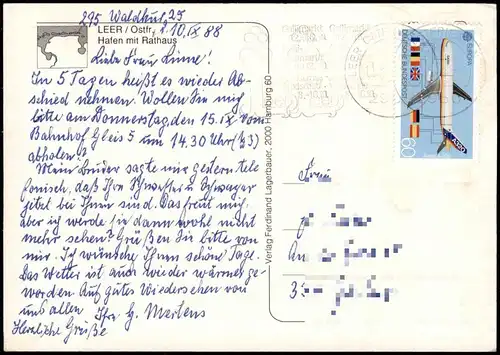 295 Waldkur, 25
LEER / Ostfr., 10. IX 88
Hafen mit Rathaus
Liebe Frau Linne!
In 5 Tagen heißt es wieder Ab-
schied nehmen. Wollen Sie mich
bitte am Donnerstag den 15. IX vom
Bahnhof Gleis 5 um 14.30 Uhr
abholen?
Mein Bruder sagte mir gestern tele-
fonisch, daß Ihre Schwester u Schwager
jetzt bei Ihnen sind. Das freut mich,
aber ich werde sie dann wohl nicht
mehr sehen? Grüßen Sie bitte von
mir. Ich wünsche Ihnen schöne Tage.
Das Wetter ist auch wieder wärmer ge-
worden. Auf gutes Wiedersehen von
uns allen. Ihre G. Mertens
Herzliche Grüße
Verlag Ferdinand Lagerbauer, 2000 Hamburg 60
LEER
EUROPA
DEUTSCHE BUNDESPOST
60
Frau
An
3